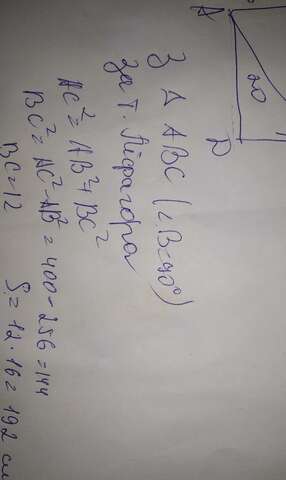 A
20
D
З Δ ABC (∠B=90°)
за т. Піфагора
AC² = AB² + BC²
BC² = AC² - AB² = 400 - 256 = 144
BC = 12 S = 12 · 16 = 192 см